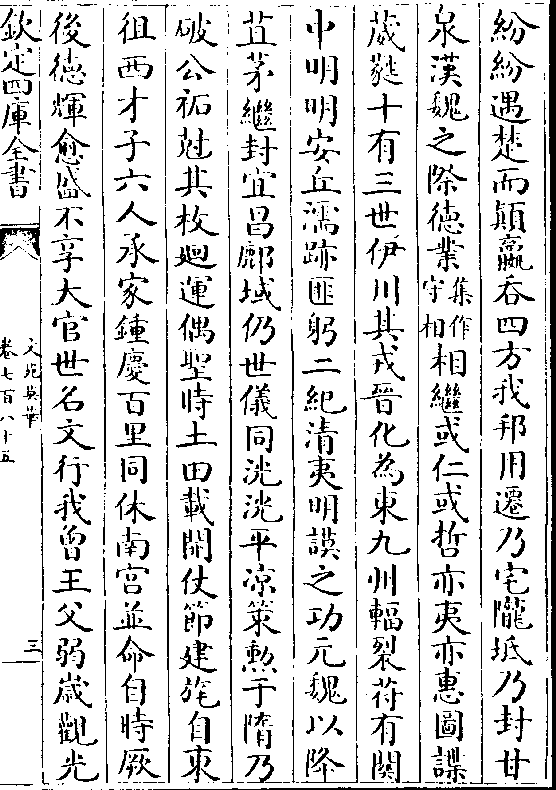 紛紛遇楚而顛嬴吞四方我邦用遷乃宅隴坻乃封甘
泉漢魏之際德業集作守相相繼或仁或哲亦夷亦惠圖諜
葳蕤十有三世伊川其戎晉化為東九州輻裂苻有關
中明明安丘濡跡匪躬二紀清夷明謨之功元魏以降
苴茅繼封宜昌鄜域仍世儀同洸洸平凉策勲于隋乃
破公祏尅其枚廻運偶聖時土田載開仗節建旄自東
徂西才子六人承家鍾慶百里同休南宫並命自時厥
後德輝愈盛不享大官世名文行我曾王父弱嵗觀光
欽定四庫全書
文苑英華
卷七百八十五
三